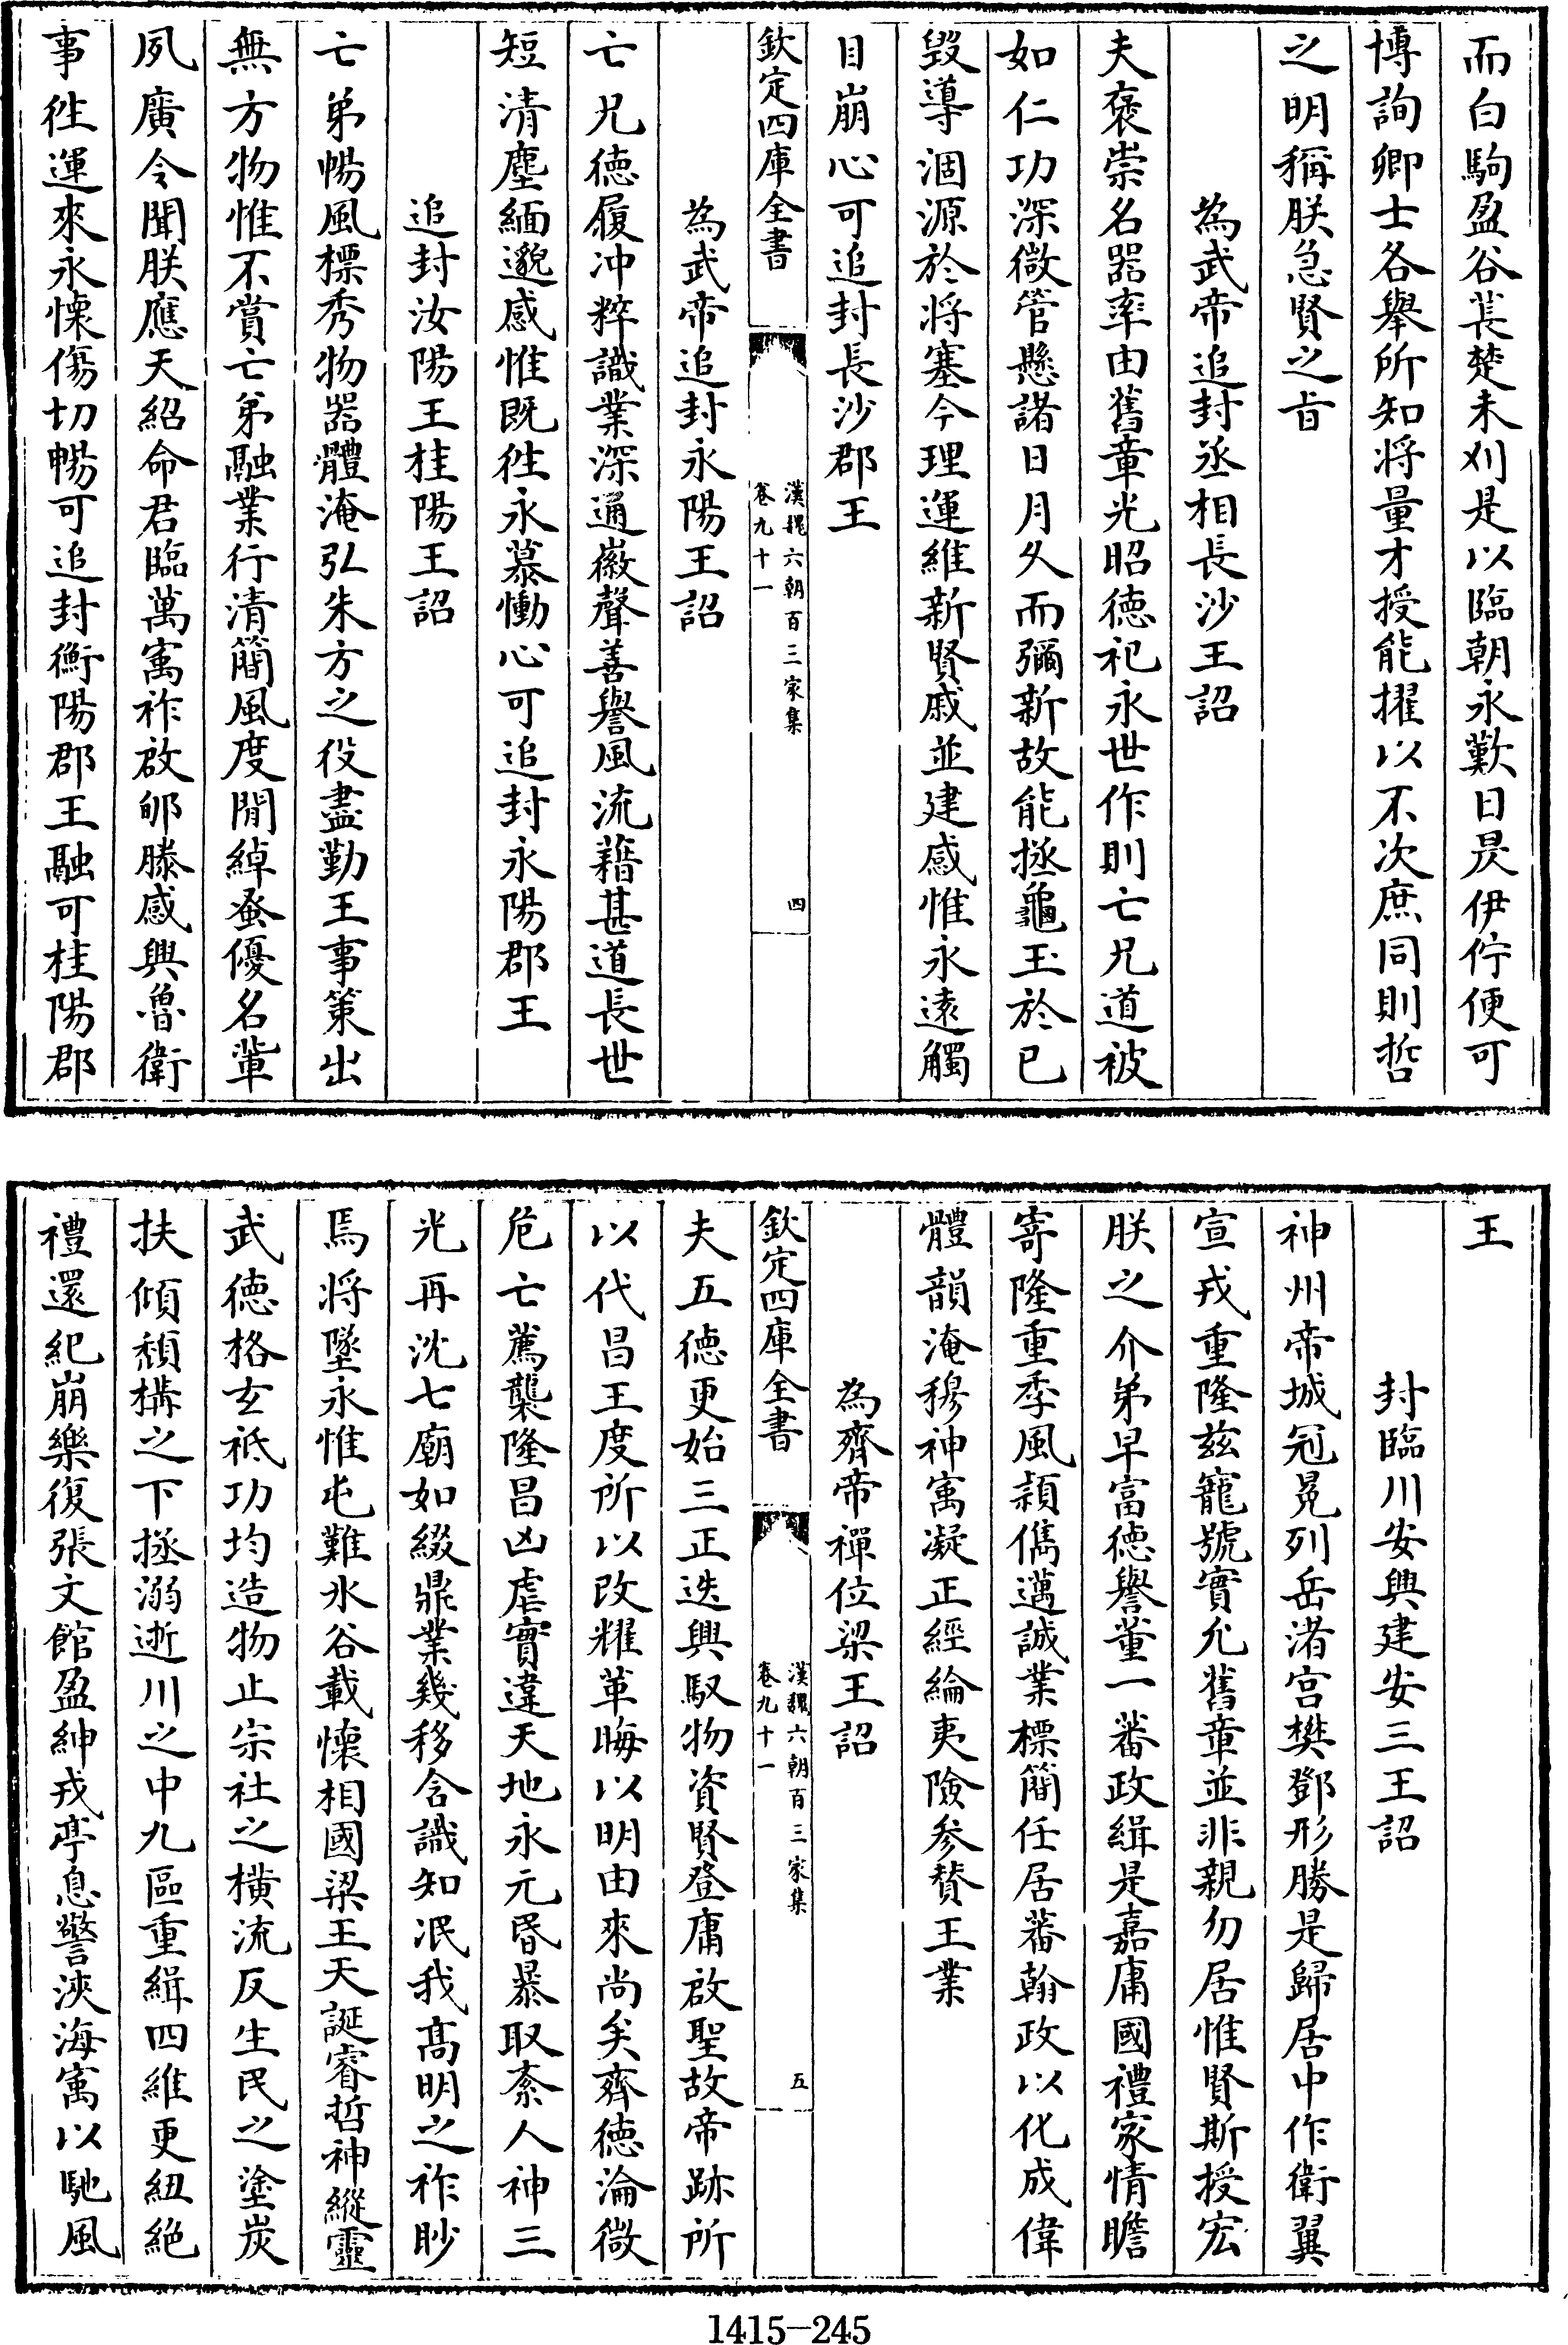 而白駒盈谷萇楚未刈是以臨朝永歎日昃伊佇便可
博詢卿士各舉所知將量才授能擢以不次庶同則哲
之明稱朕急賢之旨
為武帝追封丞相長沙王詔
夫褒崇名器率由舊章光昭德祀永世作則亡兄道被
如仁功深微管懸諸日月久而彌新故能拯龜玉於已
毀導涸源於將塞今理運維新賢戚並建感惟永遠觸
目崩心可追封長沙郡王
欽定四庫全書
漢魏六朝百三家集
卷九十一
四
為武帝追封永陽王詔
亡兄德履冲粹識業深通徽聲善譽風流藉甚道長世
短清塵緬邈感惟既徃永慕慟心可追封永陽郡王
追封汝陽王桂陽王詔
亡弟暢風標秀物器體淹弘朱方之役盡勤王事策出
無方物惟不賞亡弟融業行清簡風度閒綽蚤優名輩
夙廣令聞朕應天紹命君臨萬寓祚啟郇滕感興魯衛
事徃運來永懷傷切暢可追封衡陽郡王融可桂陽郡
王
封臨川安興建安三王詔
神州帝城冠冕列岳渚宮樊鄧形勝是歸居中作衛翼
宣戎重隆兹寵號實允舊章並非親勿居惟賢斯授宏
朕之介弟早富德譽董一蕃政緝是嘉庸國禮家情瞻
寄隆重季風穎儁邁誠業標簡任居蕃翰政以化成偉
體韻淹穆神寓凝正經綸夷險參贊王業
為齊帝禪位梁王詔
欽定四庫全書
漢魏六朝百三家集
卷九十一
五
夫五德更始三正迭興馭物資賢登庸啟聖故帝跡所
以代昌王度所以改耀革晦以明由來尚矣齊德淪微
危亡薦襲隆昌凶虐實違天地永元昏暴取紊人神三
光再沈七廟如綴鼎業幾移含識知泯我髙明之祚眇
焉將墜永惟屯難氷谷載懷相國梁王天誕睿哲神縱靈
武德格玄祗功均造物止宗社之橫流反生民之塗炭
扶傾頹構之下拯溺逝川之中九區重緝四維更紐絶
禮還紀崩樂復張文館盈紳戎亭息警浹海寓以馳風
1415-245